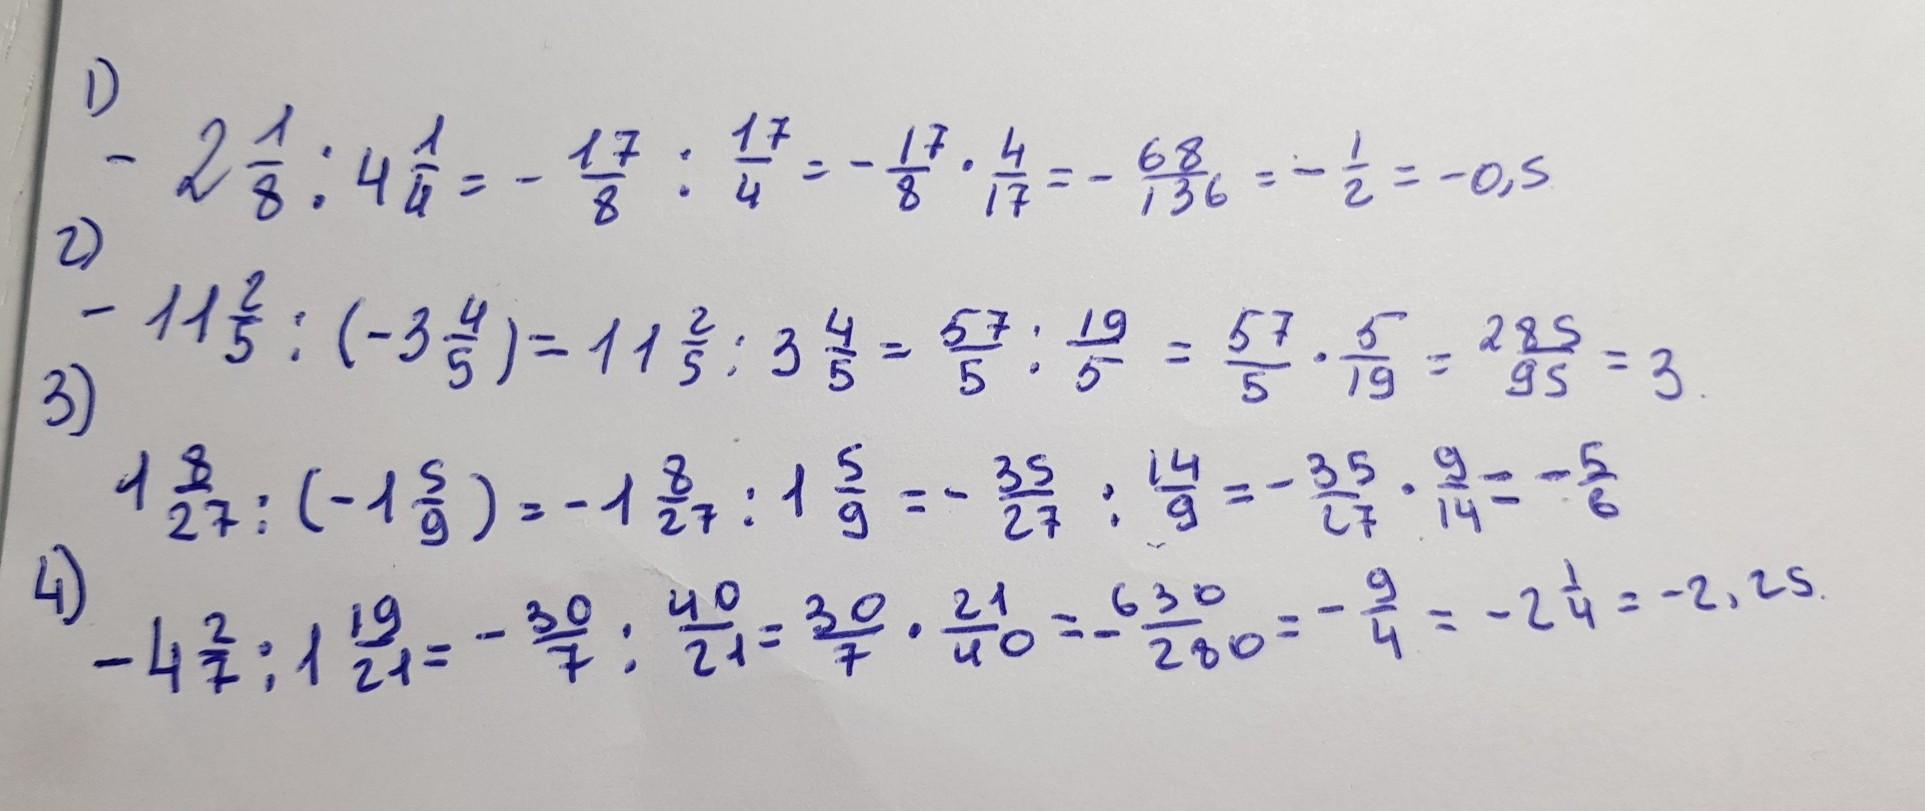 1)
- 2 1/8 : 4 1/4 = - 17/8 : 17/4 = - 17/8 · 4/17 = - 68/136 = - 1/2 = -0,5
2)
- 11 2/5 : (-3 4/5) = 11 2/5 : 3 4/5 = 57/5 : 19/5 = 57/5 · 5/19 = 285/95 = 3.
3)
1 8/27 : (-1 5/9) = -1 8/27 : 1 5/9 = - 35/27 : 14/9 = - 35/27 · 9/14 = - 5/6
4)
-4 2/7 : 1 19/21 = - 30/7 : 40/21 = 30/7 · 21/40 = - 630/280 = - 9/4 = -2 1/4 = -2,25.